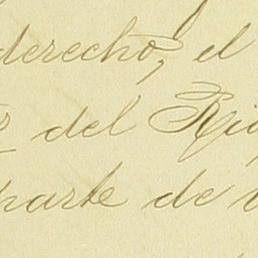 derecho, el
del Rio
parte de